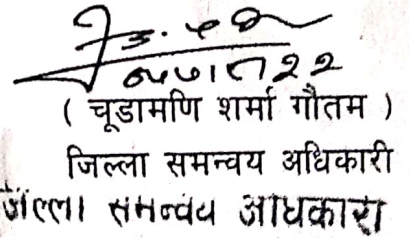 ( चूडामणि शर्मा गौतम )
जिल्ला समन्वय अधिकारी
जिल्ला समन्वय अधिकारी